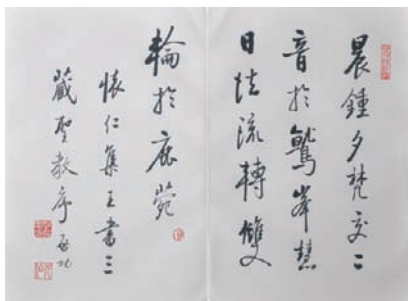 晨鍾夕梵交二
音於鷲峯慧
日法流轉雙
輪於鹿菀
懷仁集王書三
藏聖教序 启功